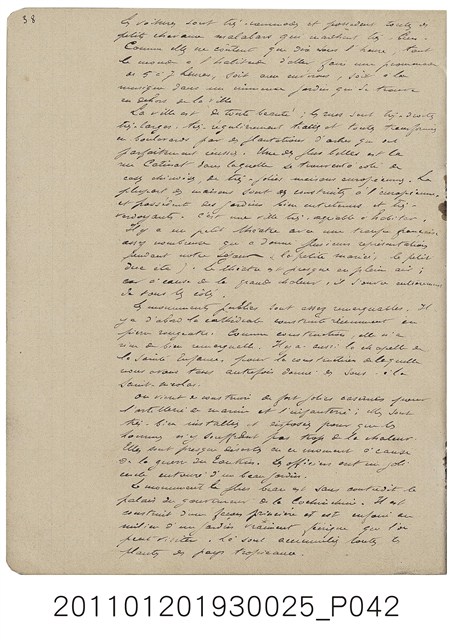 38
les voitures sont très-commodes et possèdent toutes de
petits chevaux malabars qui marchent très-bien.
Comme elles ne coûtent que dix sous l'heure, tout
le monde a l'habitude d'aller faire une promenade
de 5 à 7 heures, soit aux environs, soit à la
musique dans un immense jardin qui se trouve
en dehors de la ville
La ville est de toute beauté; les rues sont très-droites
très-larges, très-régulièrement tracées et toutes transformées
en boulevards par des plantations d'arbres qui ont
parfaitement réussi. Une des plus belles est la
rue Catinat dans laquelle se trouvent à côté de
cases chinoises de très-jolies maisons européennes. La
plupart des maisons sont construites à l'européenne
et possèdent des jardins bien entretenus et très-
verdoyants. C'est une ville très-agréable à habiter.
Il y a un petit théâtre avec une troupe française
assez nombreuse qui a donné plusieurs représentations
pendant notre séjour (la petite mariée, le petit
duc etc). Le théâtre est presque en plein air;
car à cause de la grande chaleur, il s'ouvre entièrement
de tous les côtés.
Les monuments publics sont assez remarquables. Il
y a d'abord la cathédrale construite récemment en
pierre rougeâtre. Comme construction, elle n'a
rien de bien remarquable. Il y a aussi la chapelle de
la Sainte Enfance, pour la construction de laquelle
nous avons tous autrefois donné des sous à la
Saint-Nicolas.
On vient de construire de fort jolies casernes pour
l'artillerie de marine et l'infanterie; elles sont
très-bien installées et disposées pour que les
hommes n'y souffrent pas trop de la chaleur.
Elles sont presque désertes en ce moment à cause
de la guerre du Tonkin. Les officiers ont un joli
cercle entouré d'un beau jardin.
Le monument le plus beau est sans contredit le
palais du gouverneur de la Cochinchine. Il est
construit d'un façon princière et est enfoui au
milieu d'un jardin vraiment féerique que l'on
peut visiter. Là sont accumulées toutes les
plantes des pays tropicaux.
201101201930025_P042